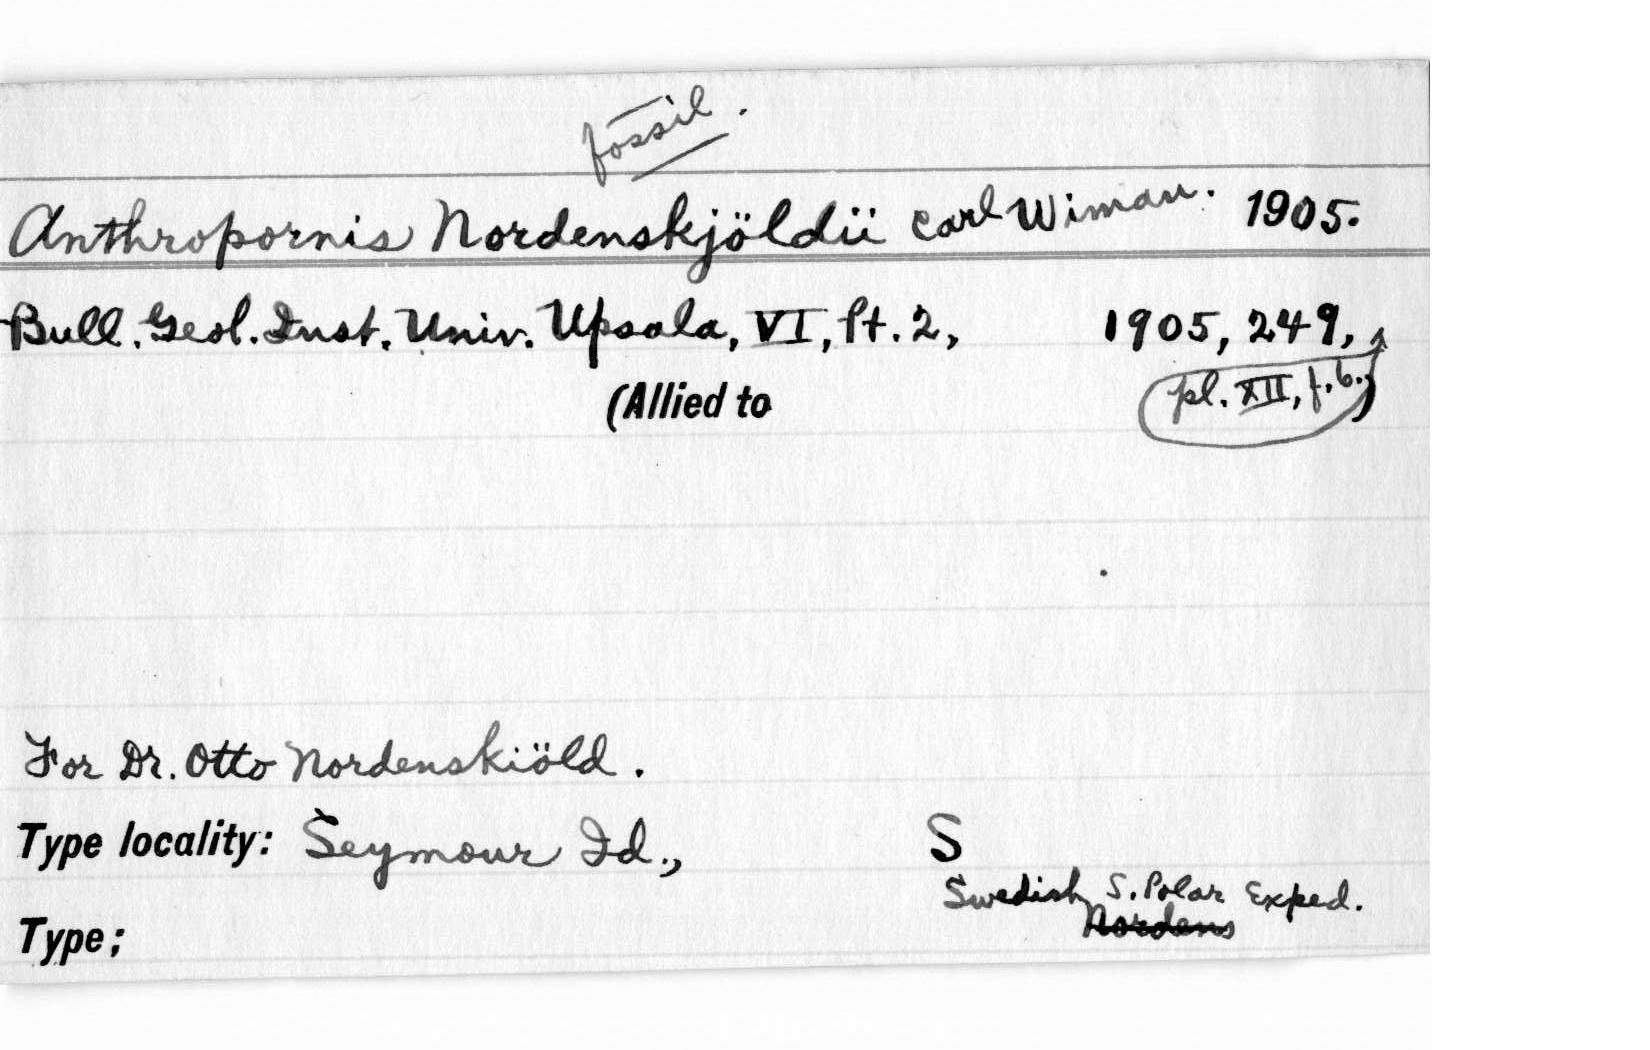 fossil.
Anthropornis Nordenskjöldii Carl Wiman. 1905.
Bull. Geol. Inst. Univ. Upsala, VI, Pt. 2, 1905, 249,
(Allied to pl. XII, f. 6.)
For Dr. Otto Nordenskiöld.
Type locality: Seymour Id., S
Swedish S. Polar Exped.
Nordens
Type;